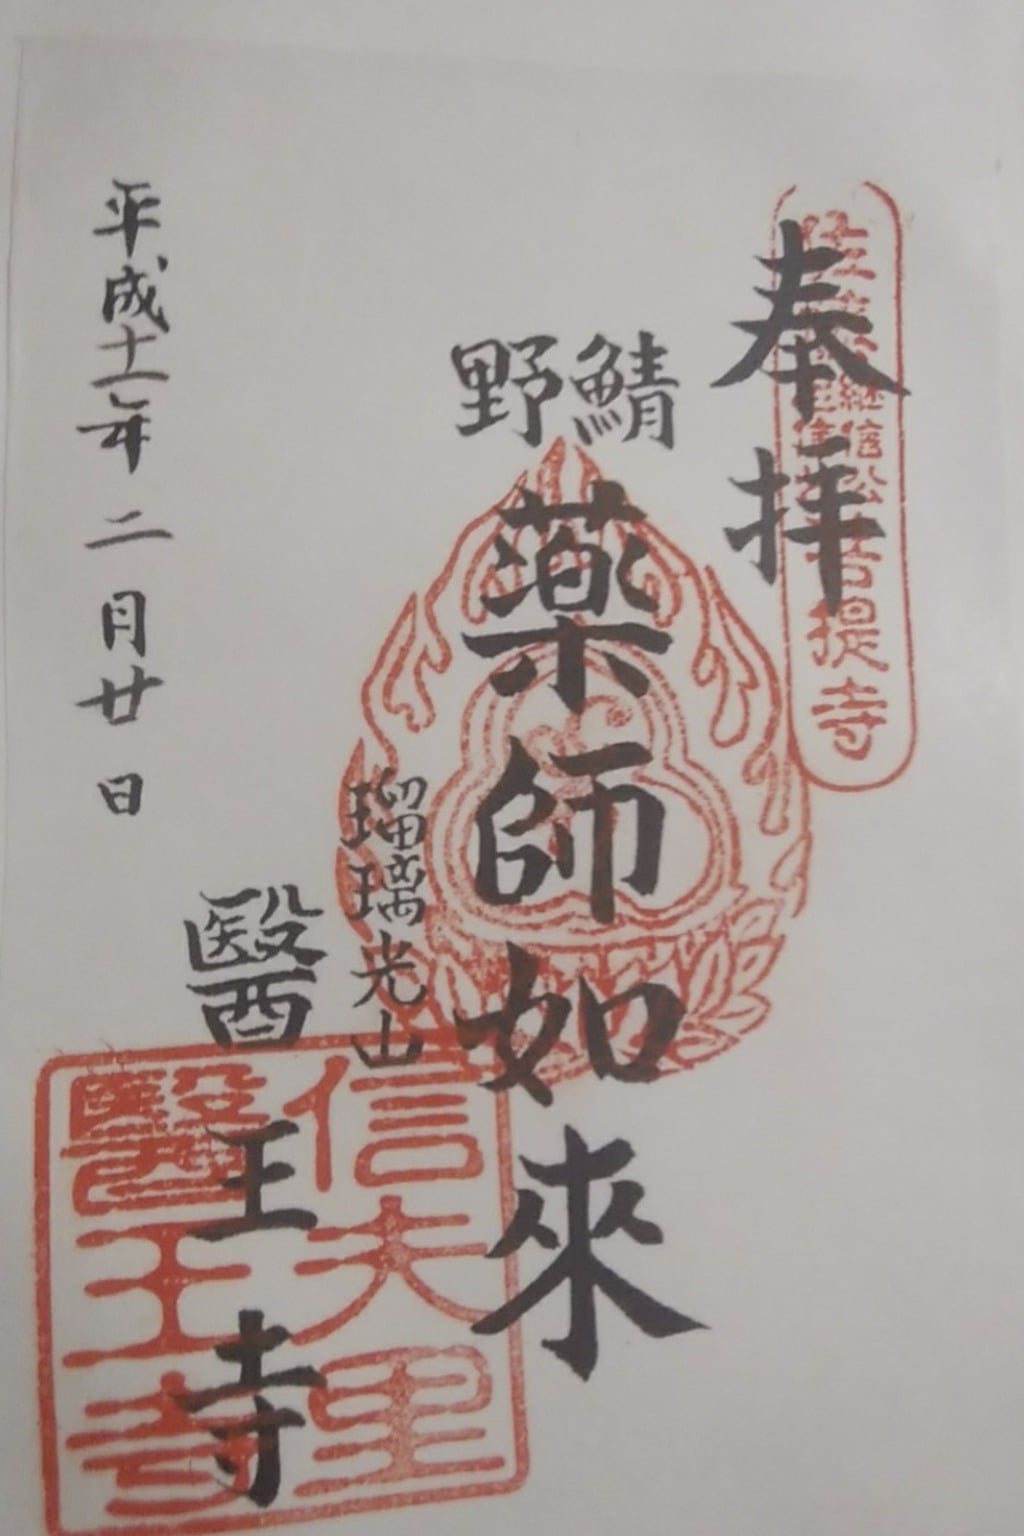 奉拝
継信公
菩提寺
鯖野
薬師如來
瑠璃光山
醫王寺
信夫里
醫王寺
平成十二年二月廿日